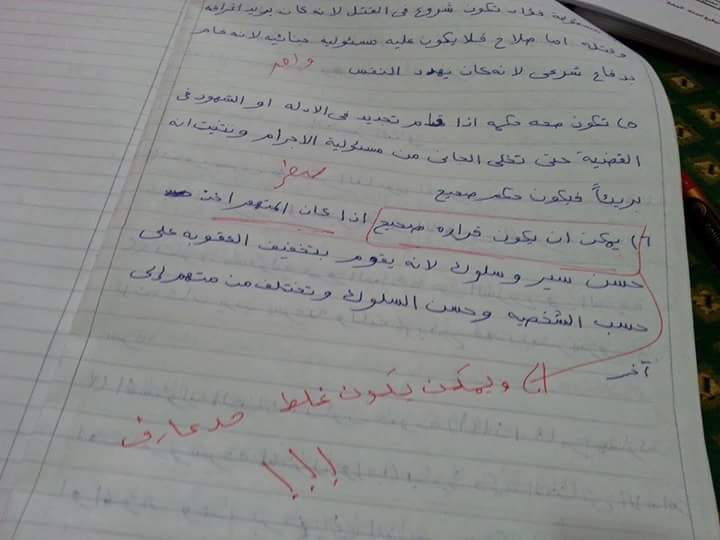 فؤاد تكون شروع في القتل لانه كان يريد
وقتله اما صلاح فلا يكون عليه مسئوليه جنائيه لانه قام
بدفاع شرعى لانه كان يهدد النفس
واحد
تكون صحه حكمه اذا قام تحديد فى الادله او الشهود فى
القضية حتى تخلى الجانى من مسئولية الاجرام وتثبت انه
بريئاً فيكون حكم صحيح
صفر
يمكن ان يكون قراره صحيح اذا كان المتهم
حسن سير وسلوك لانه يقوم بتخفيف العقوبه على
حسب الشخصيه وحسن السلوك وتختلف من متهم إلى
آخر
ويمكن يكون غلط حد عارف
!!!